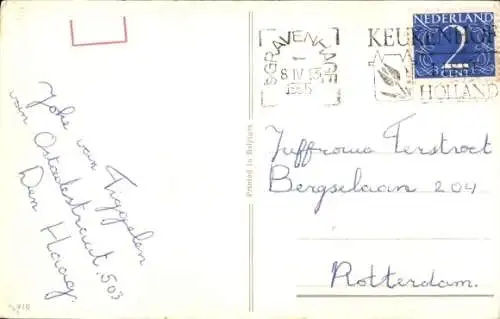 Joke van Tiggelen
van Ostadestraat. 503
Den Haag.
'SGRAVENHAGE
1
8 IV 13
1955
KEUKENHOF
HOLLAND
NEDERLAND
2
CENT
Printed in Belgium
Juffrouw Terstroet
Bergselaan 204
Rotterdam.